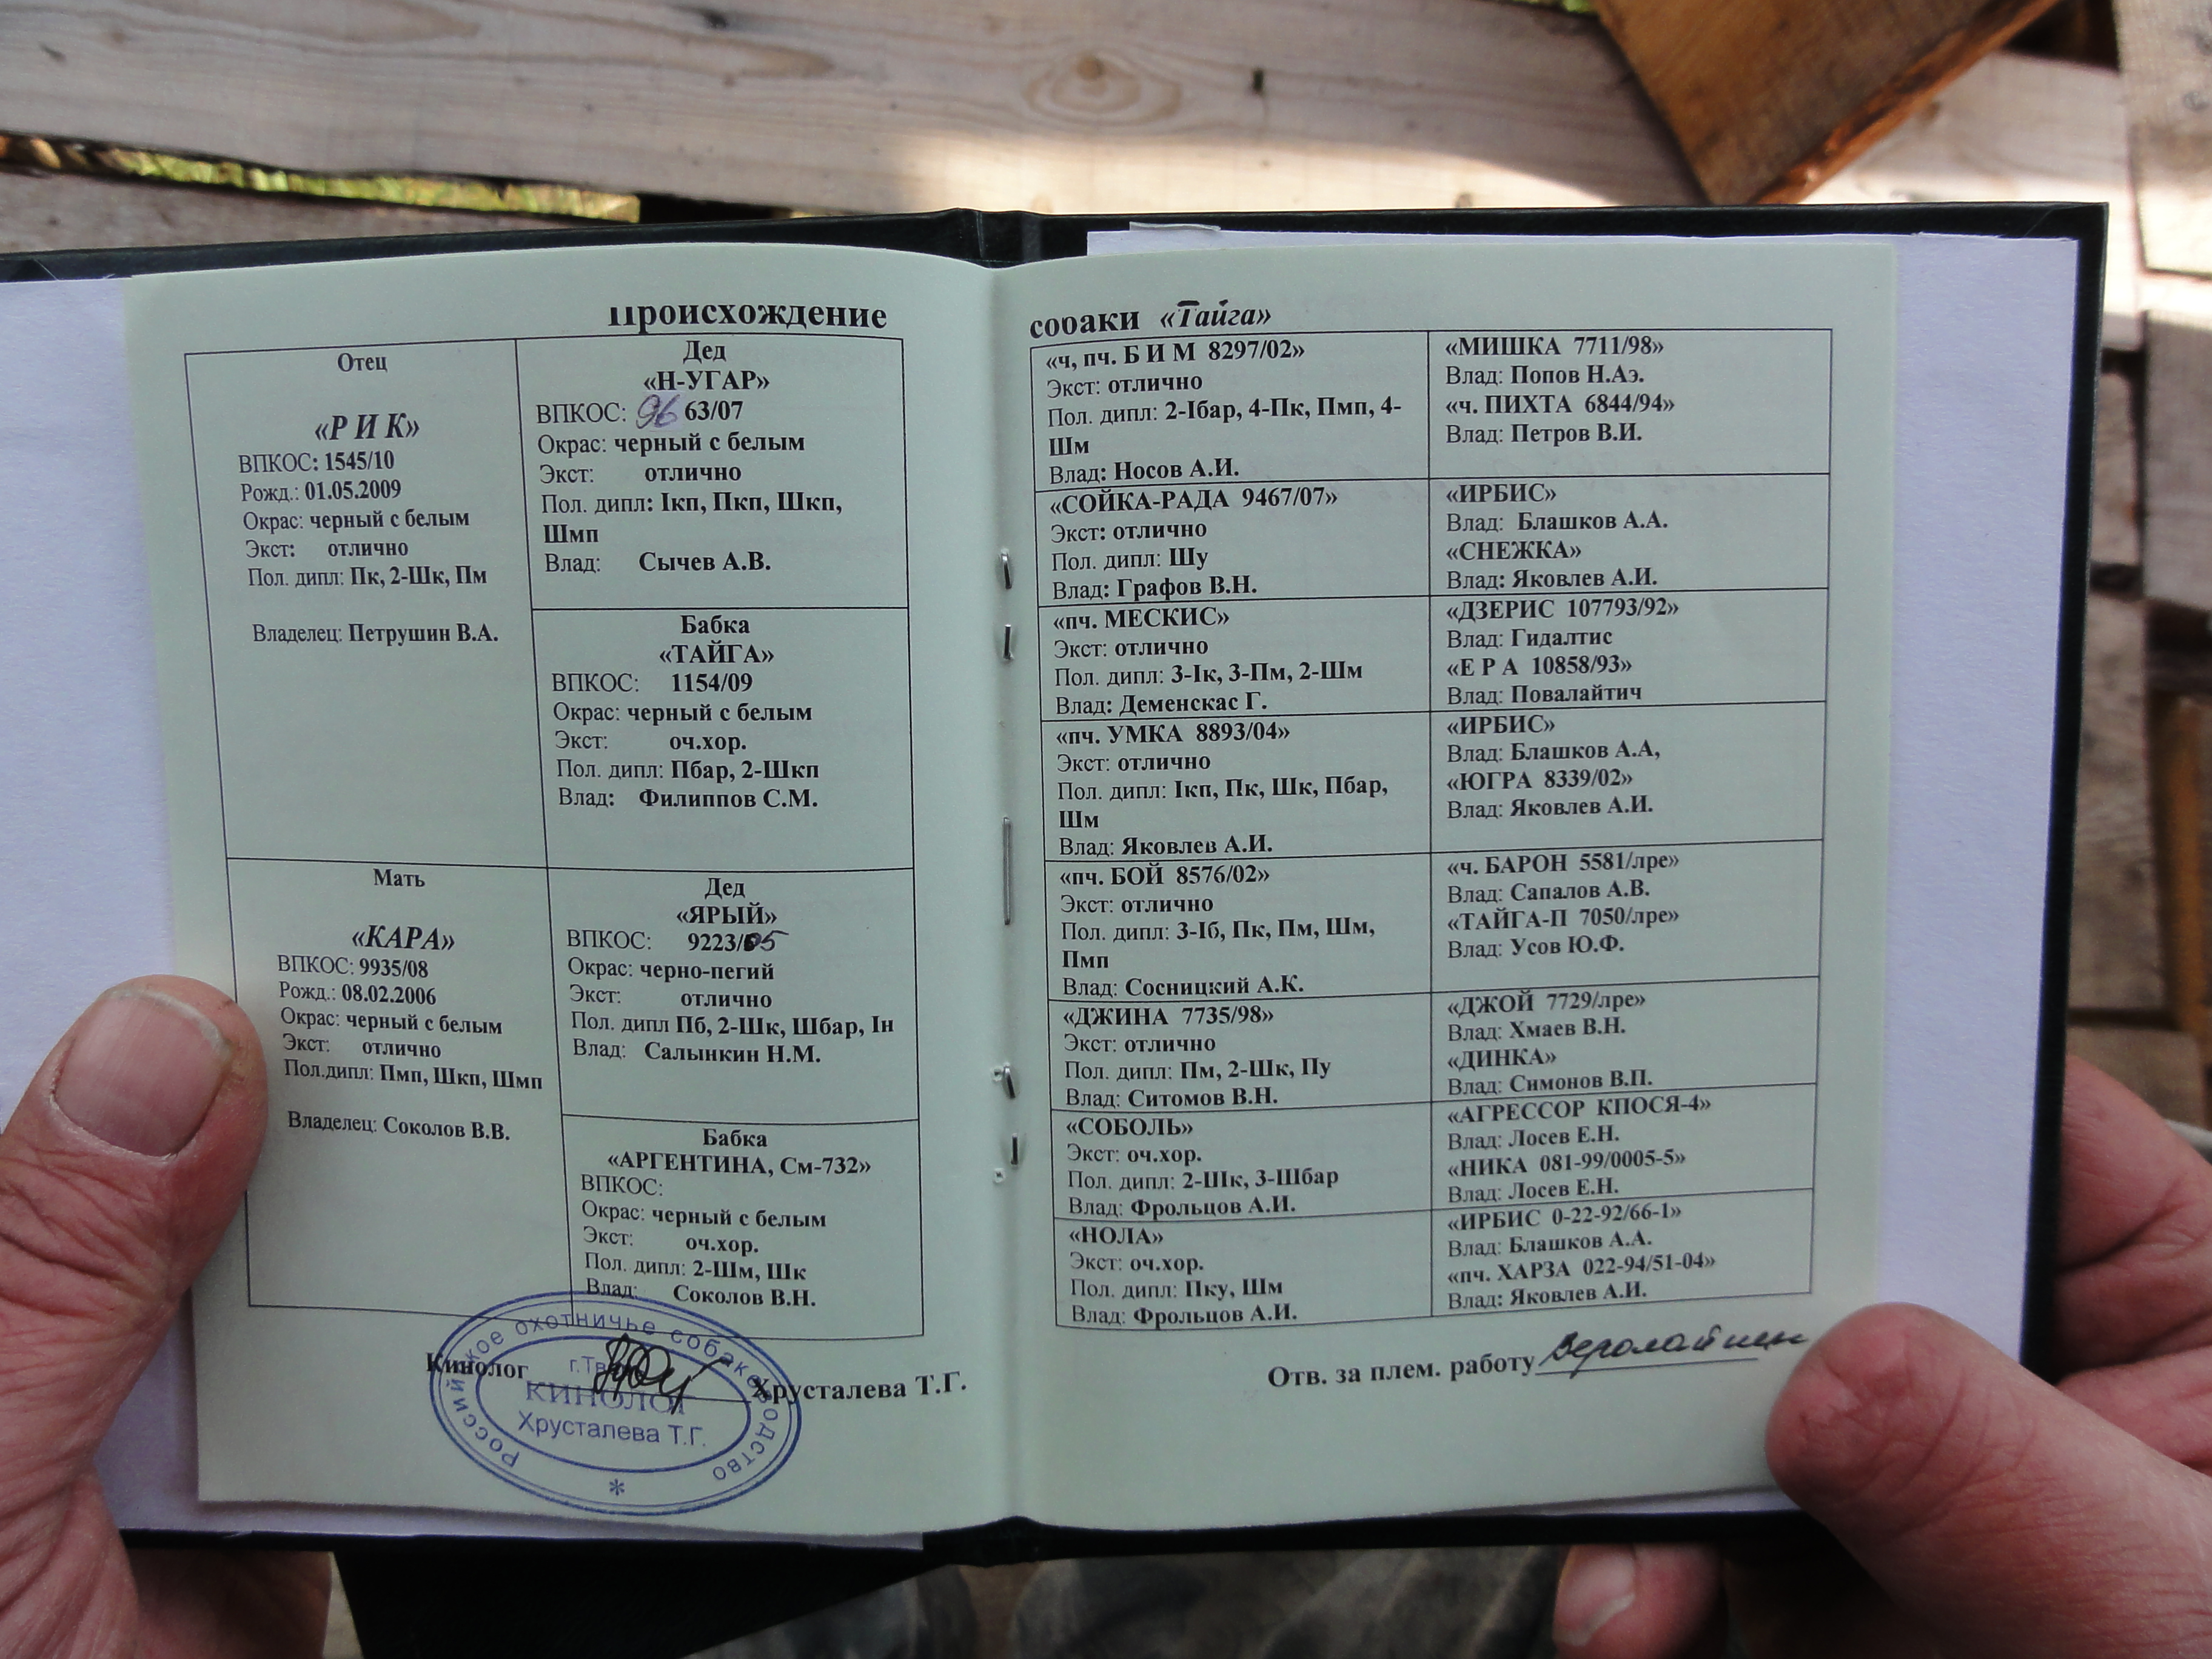 Происхождение
Отец
«Р И К»
ВПКОС: 1545/10
Рожд.: 01.05.2009
Окрас: черный с белым
Экст: отлично
Пол. дипл: Пк, 2-Шк, Пм
Владелец: Петрушин В.А.
Дед
«Н-УГАР»
ВПКОС: 96 63/07
Окрас: черный с белым
Экст: отлично
Пол. дипл: Iкп, Пкп, Шкп,
Шмп
Влад: Сычев А.В.
Бабка
«ТАЙГА»
ВПКОС: 1154/09
Окрас: черный с белым
Экст: оч.хор.
Пол. дипл: Пбар, 2-Шкп
Влад: Филиппов С.М.
Мать
«КАРА»
ВПКОС: 9935/08
Рожд.: 08.02.2006
Окрас: черный с белым
Экст: отлично
Пол.дипл: Пмп, Шкп, Шмп
Владелец: Соколов В.В.
Дед
«ЯРЫЙ»
ВПКОС: 9223/05
Окрас: черно-пегий
Экст: отлично
Пол. дипл Пб, 2-Шк, Шбар, Iн
Влад: Салынкин Н.М.
Бабка
«АРГЕНТИНА, См-732»
ВПКОС:
Окрас: черный с белым
Экст: оч.хор.
Пол. дипл: 2-Шм, Шк
Влад: Соколов В.Н.
Кинолог Хрусталева Т.Г.
Российское охотничье собаководство
г.Тверь
КИНОЛОГ
Хрусталева Т.Г.
*
собаки «Тайга»
«ч, пч. Б И М 8297/02»
Экст: отлично
Пол. дипл: 2-Iбар, 4-Пк, Пмп, 4-
Шм
Влад: Носов А.И.
«МИШКА 7711/98»
Влад: Попов Н.Аэ.
«ч. ПИХТА 6844/94»
Влад: Петров В.И.
«СОЙКА-РАДА 9467/07»
Экст: отлично
Пол. дипл: Шу
Влад: Графов В.Н.
«ИРБИС»
Влад: Блашков А.А.
«СНЕЖКА»
Влад: Яковлев А.И.
«пч. МЕСКИС»
Экст: отлично
Пол. дипл: 3-Iк, 3-Пм, 2-Шм
Влад: Деменскас Г.
«ДЗЕРИС 107793/92»
Влад: Гидалтис
«Е Р А 10858/93»
Влад: Повалайтич
«пч. УМКА 8893/04»
Экст: отлично
Пол. дипл: Iкп, Пк, Шк, Пбар,
Шм
Влад: Яковлев А.И.
«ИРБИС»
Влад: Блашков А.А,
«ЮГРА 8339/02»
Влад: Яковлев А.И.
«пч. БОЙ 8576/02»
Экст: отлично
Пол. дипл: 3-Iб, Пк, Пм, Шм,
Пмп
Влад: Сосницкий А.К.
«ч. БАРОН 5581/лре»
Влад: Сапалов А.В.
«ТАЙГА-П 7050/лре»
Влад: Усов Ю.Ф.
«ДЖИНА 7735/98»
Экст: отлично
Пол. дипл: Пм, 2-Шк, Пу
Влад: Ситомов В.Н.
«ДЖОЙ 7729/лре»
Влад: Хмаев В.Н.
«ДИНКА»
Влад: Симонов В.П.
«СОБОЛЬ»
Экст: оч.хор.
Пол. дипл: 2-Шк, 3-Шбар
Влад: Фрольцов А.И.
«АГРЕССОР КПОСЯ-4»
Влад: Лосев Е.Н.
«НИКА 081-99/0005-5»
Влад: Лосев Е.Н.
«НОЛА»
Экст: оч.хор.
Пол. дипл: Пку, Шм
Влад: Фрольцов А.И.
«ИРБИС 0-22-92/66-1»
Влад: Блашков А.А.
«пч. ХАРЗА 022-94/51-04»
Влад: Яковлев А.И.
Отв. за плем. работу